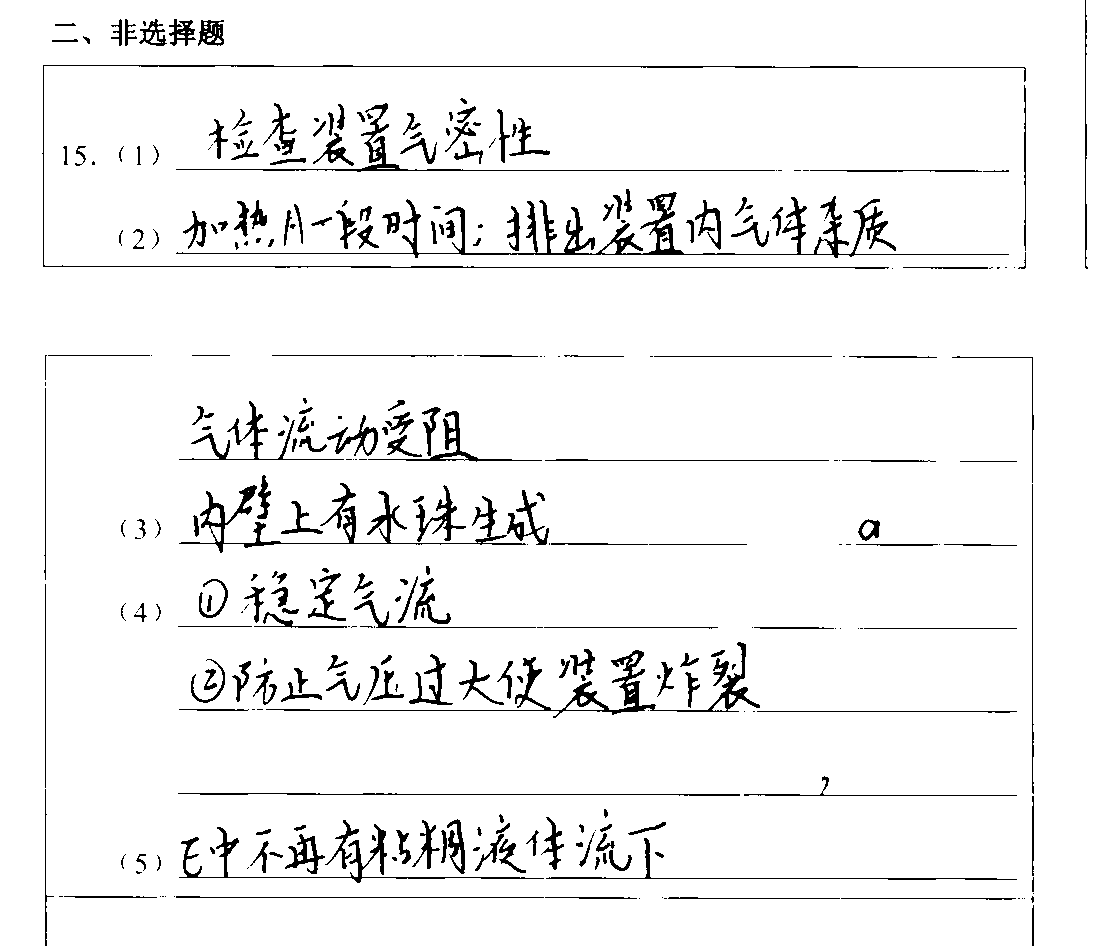 二、非选择题
15.（1） 检查装置气密性
（2） 加热一段时间；排出装置内气体杂质
气体流动受阻
（3） 内壁上有水珠生成 a
（4） ①稳定气流
②防止气压过大使装置炸裂
，
（5） E中不再有粘稠液体流下